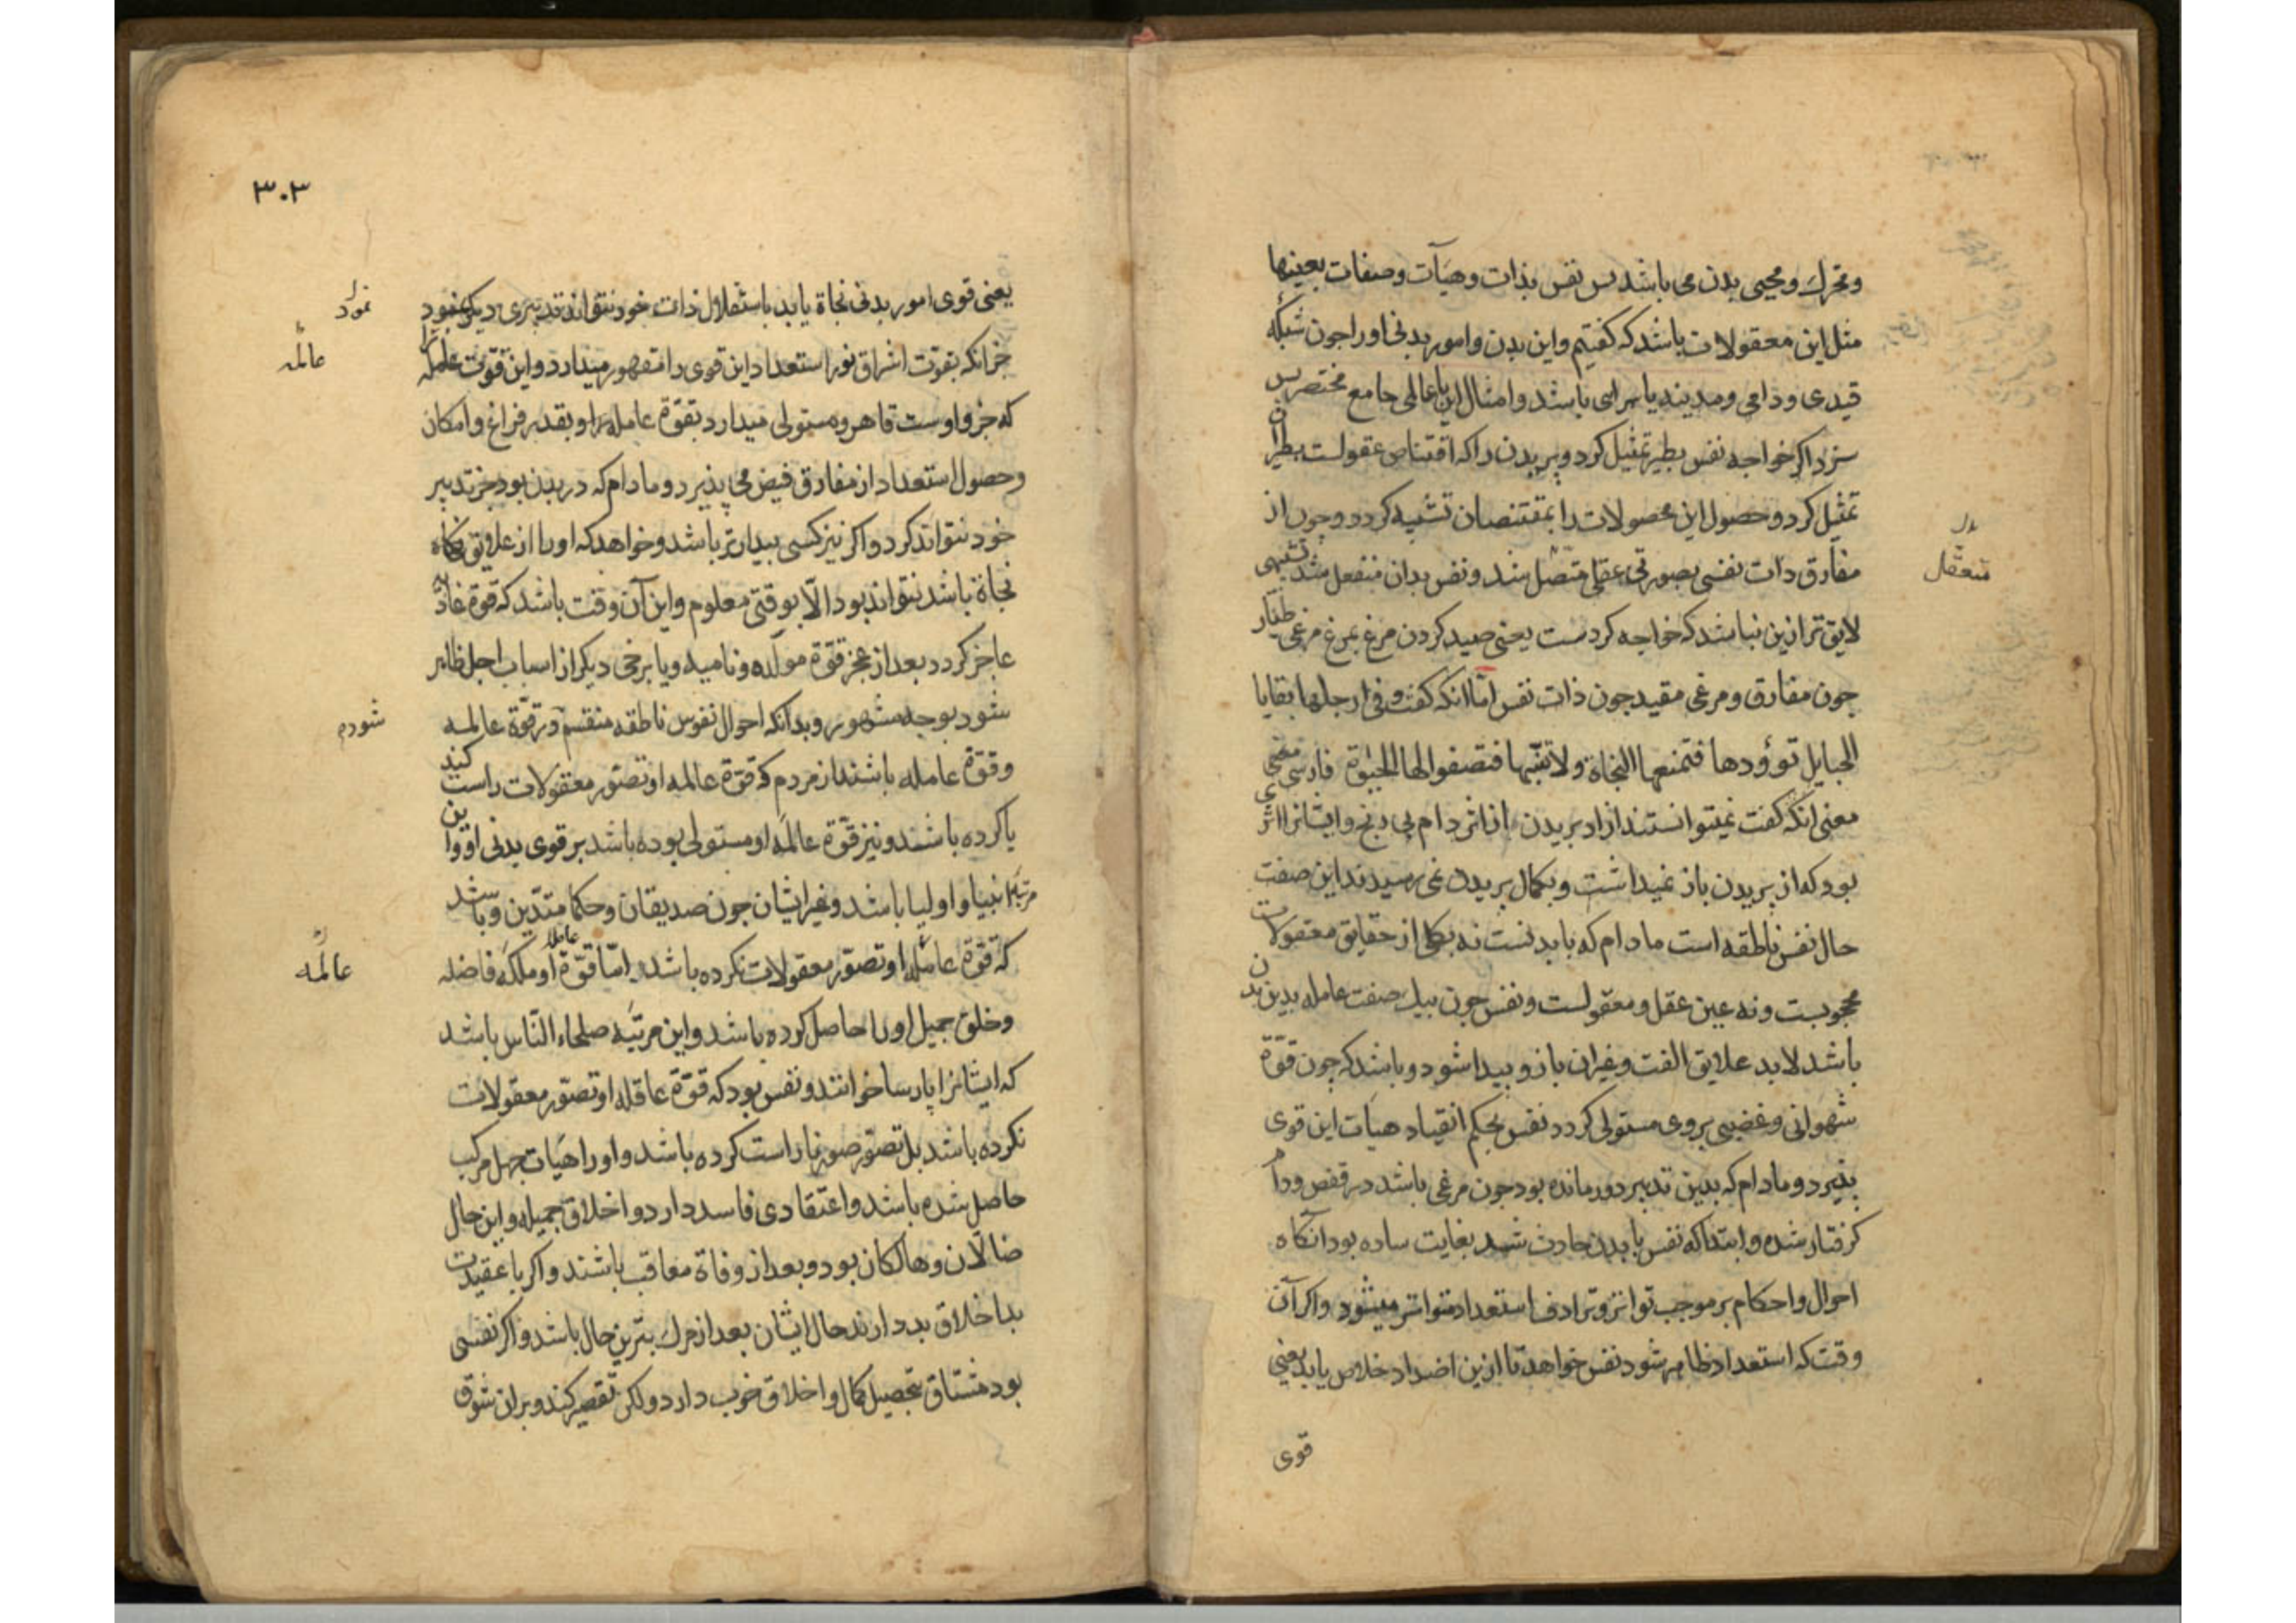 ومحرك ومحیی بدن می باشد پس نفس بذات وهیآت وصفات بعینها
مثل این معقولات باشد که کفتیم واین بدن وامور بدنی اورا جون شبکه
قیدی ودامی و یاسرایی باشد وامثال این باعالمی جامع مختصر پس
سزد اکر خواجه نفس بطیر تمثیل کرد وپریدن را که اقتناص عقولست بطیران
تمثیل کرد وحصول این محصولات را بمقتنصان تشبیه کرد وجون از
مفارق ذات نفسی بصورتی عقلی متصل شد ونفس بدان منفعل شد تشبیهی
لایق تر ازین نباشد که خواجه کردست یعنی صید کردن مرغ بمرغ مرغی طیار
جون مفارق ومرغی مقید جون ذات نفس امّا انکه کفت وفی ارجلها بقایا
الحبایل تؤودها فتمنعها النجاة ولا تبینها فتصفوا لها الحیوة فارسی
معنی انکه کفت نمیتوانستند ازاد پریدن از اثر دام بی رنج وایشانرا اثری
بود که از پریدن باز نمیداشت وبکمال پریدن نمی رسیدند این صفت
حال نفس ناطقه است مادام که بابدنست نه بکلی از حقایق معقولات
محجوبست ونه عین عقل ومعقولست ونفس جون بیك صفت عامله بدین بدن
باشد لابد علایق الفت وغیر آن بازو بیدا شود وباشد که جون قوّة
شهوانی وغضبی بروی مستولی کردد نفس بحکم انقیاد هیآت این قوی
بذیرد ومادام که بدین تدبیر دورمانده بود جون مرغی باشد در قفص ودام
کرفتار شده وابتدا که نفس با بدن حادث شد بغایت ساده بود انکاه
احوال واحکام بر موجب تواتر وترادف استعداد متواتر میشود واکر آن
وقت که استعداد ظاهر شود نفس خواهد تا ازین اضداد خلاص یابد یعنی
قوی
بدل
متعقّل
٣٠٣
یعنی قوی امور بدنی نجاة یابد باستقلال ذات خود نتواند تدبیری دیکر نمود
جز انکه بقوت اشراق نور استعداد این قوی را مقهور میدارد واین قوت
که جزو اوست قاهر ومستولی میدارد بقوّة عامله را وبقدر فراغ وامکان
وحصول استعداد از مفارق فیض می پذیرد ومادام که در بدن بود جز تدبیر
خود نتواند کرد واکر نیز کسی بیدارتر باشد وخواهد که اورا از علایق نکاه
نجاة باشد نتواند بود الّا بوقتی معلوم واین آن وقت باشد که قوة غاذیه
عاجز کردد بعد از عجز قوّة مولّده ونامیه ویا برخی دیکر از اسباب اجل ظاهر
شود بوجه مشهور وبدانکه احوال نفوس ناطقه منقسم وترقوّة عالمه
وقوّة عامله باشند از مردم که قوّة عالمه او تصوّر معقولات راست کنند
یا کرده باشند ونیز قوّة عالمه او مستولی بوده باشد بر قوی بدنی او واین
مرتبه انبیا واولیا باشد وغیر ایشان جون صدیقان وحکما متدین وباشد
که قوّة عامله او تصوّر معقولات نکرده باشد امّا قوّة عامله او ملکه فاضله
وخلق جمیل اورا حاصل کرده باشد واین مرتبه صلحاء النّاس باشد
که ایشانرا پارسا خوانند ونفس بود که قوّة عاقله او تصوّر معقولات
نکرده باشد بل تصوّر صور ناراست کرده باشد واورا هیات جهل مرکب
حاصل شده باشد واعتقادی فاسد دارد واخلاق جمیله واین حال
ضالّان وهالکان بود وبعد از وفاة معاقب باشند واکر با عقیدت
بد اخلاق بد دارند حال ایشان بعد از مرك بترین حال باشد واکر نفسی
بود مشتاق بتحصیل کمال واخلاق خوب دارد ولکن تقصیر کند وبران شوق
نمود
عالمه
شودم
عالمه